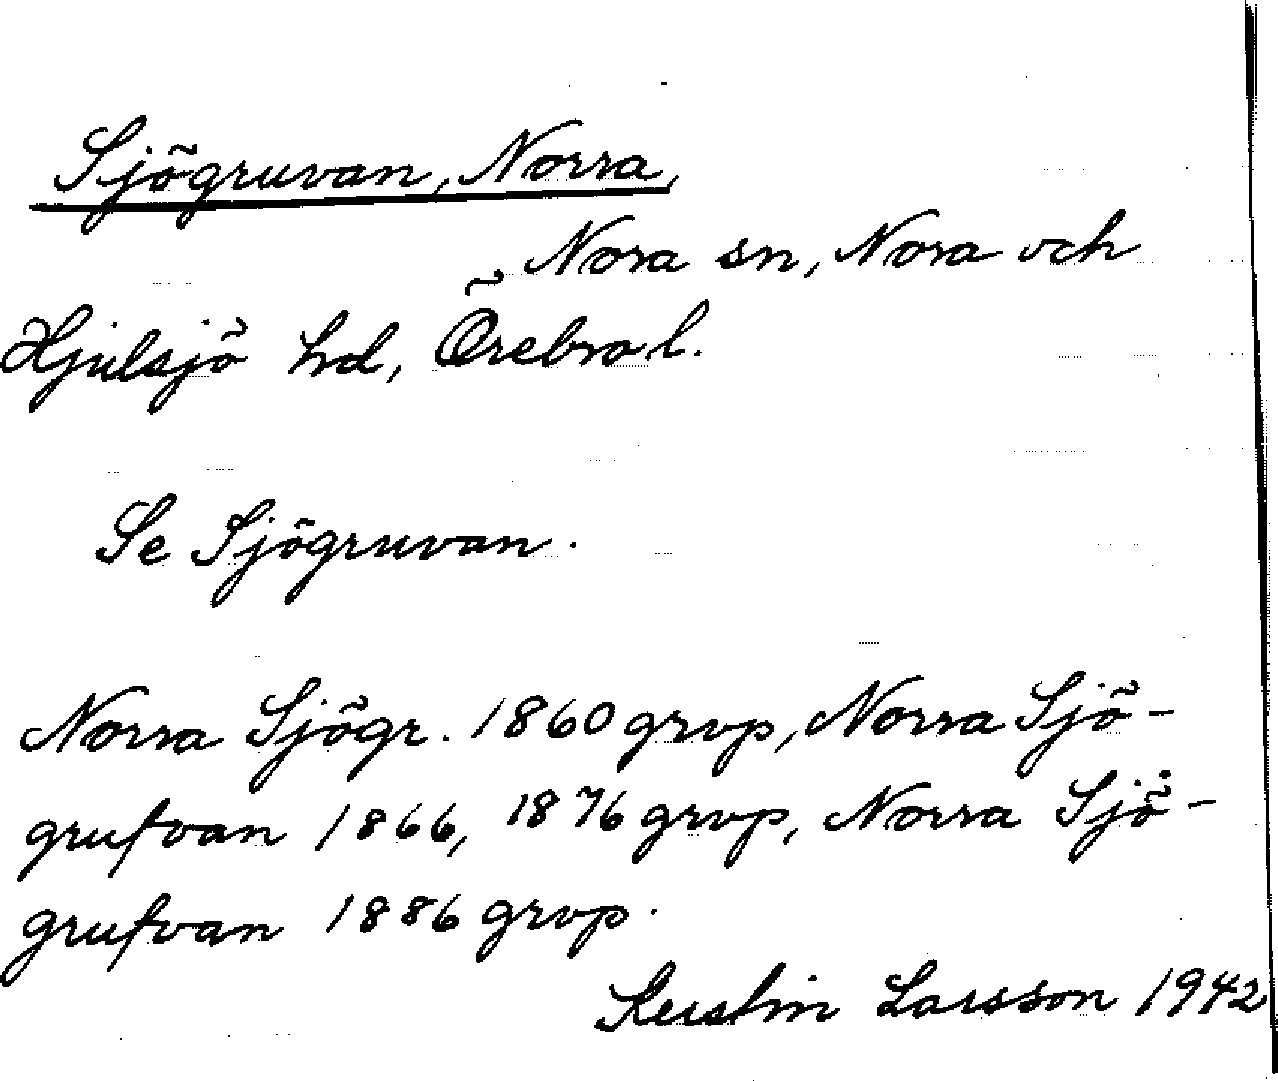 Sjögruvan, Norra,
Nora sn, Nora och
Hjulsjö hd, Örebro l.
Se Sjögruvan.
Norra Sjögr. 1860 grvp, Norra Sjö-
grufvan 1866, 1876 grvp, Norra Sjö-
grufvan 1886 grvp.
Kerstin Larsson 1942